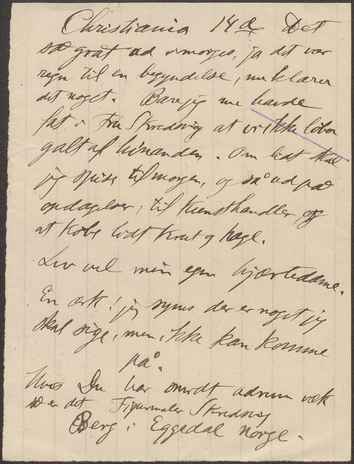 Christiania 14de Det
så gråt ud imorges, ja det var
regn til en begyndelse, nu klarer
det noget. Bare jeg nu havde
fåt i Fru Skredsvig at vi ikke løber
galt af hinanden. Om lidt skal
jeg spise til morgen, og så ud på
opdagelser, til Kunsthandler, og
at købe lidt Krut og hagl.
Lev vel min egen hjertedame.
En æsk! jeg synes der er noget jeg
skal sige, men ikke kan komme
på.
Hvis Du har smidt adressen væk
så er det Figurmaler Skredsvig
Berg i Eggedal Norge.